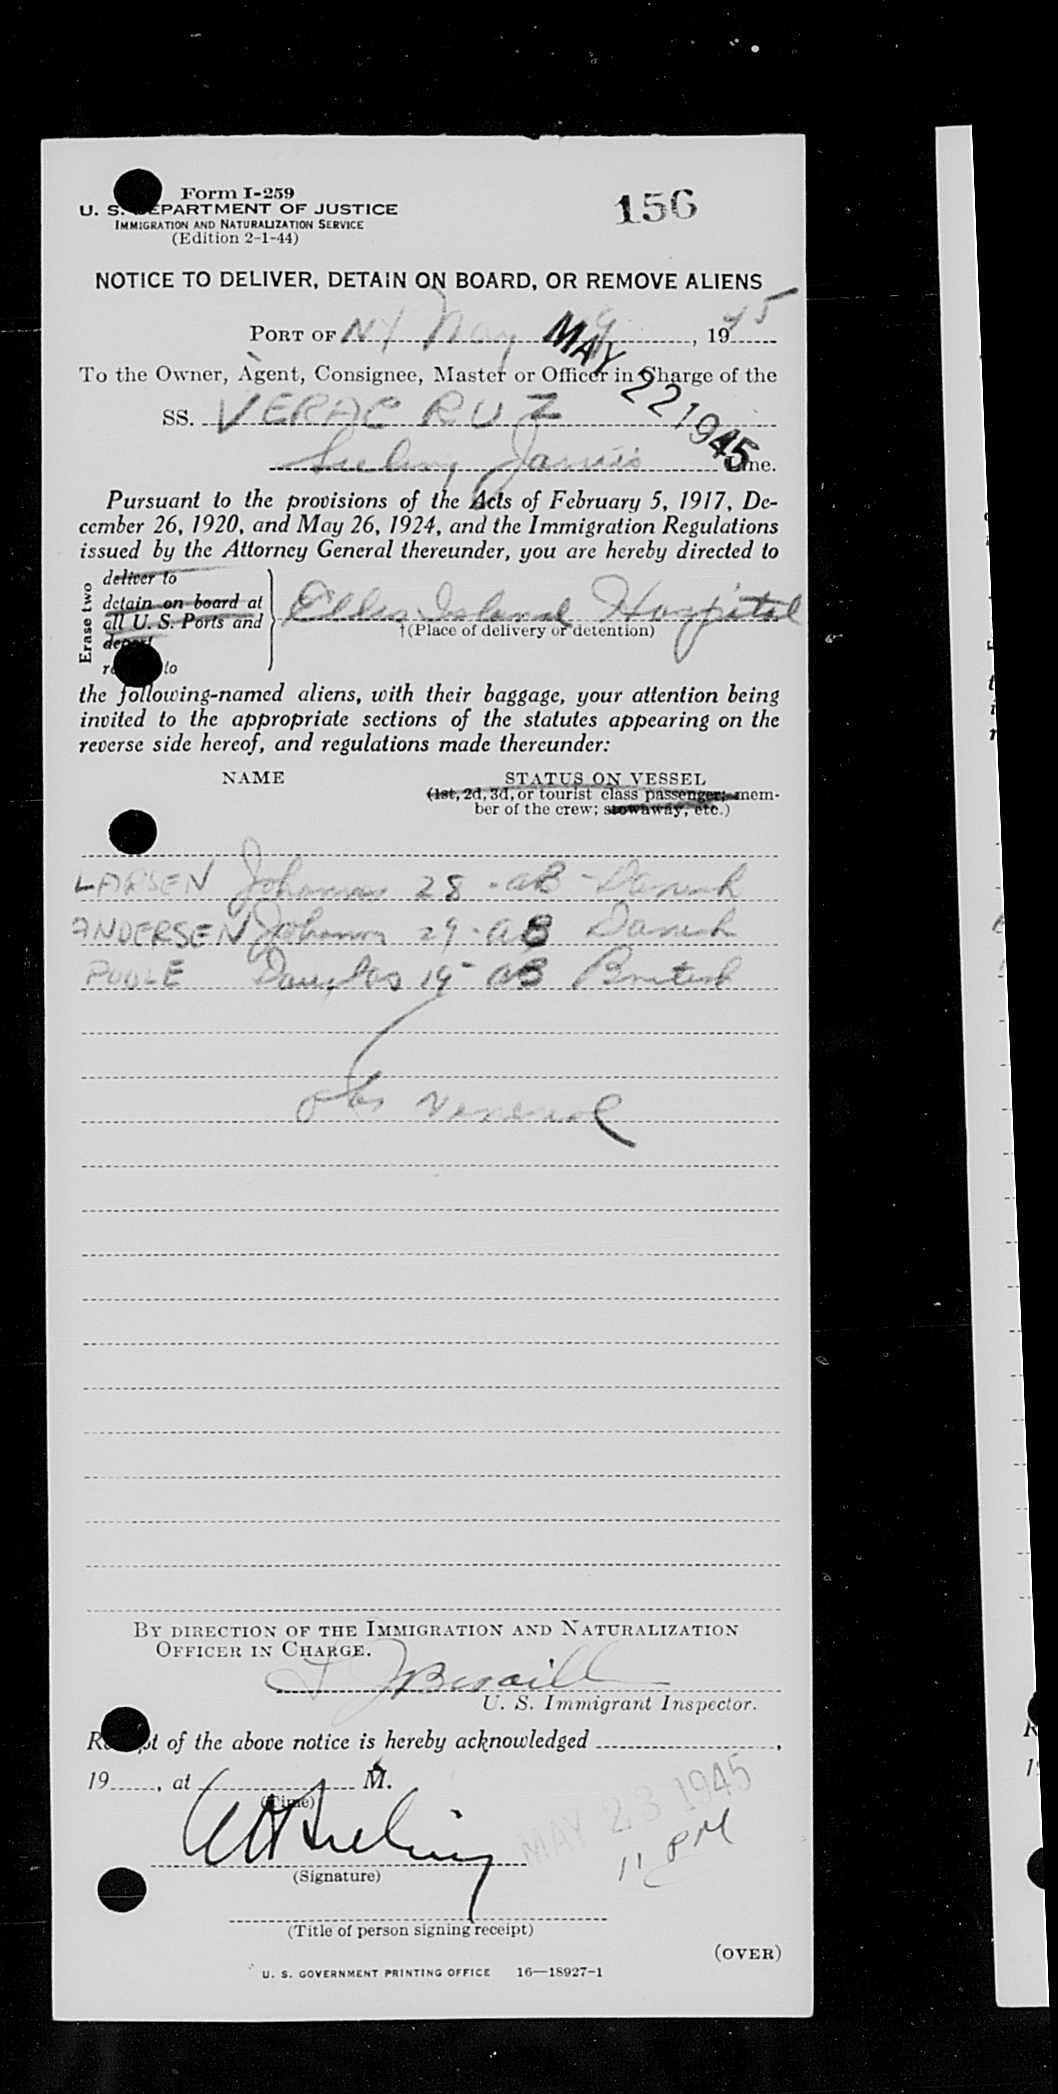 Form I-259
U. S. DEPARTMENT OF JUSTICE
IMMIGRATION AND NATURALIZATION SERVICE
(Edition 2-1-44)
156
NOTICE TO DELIVER, DETAIN ON BOARD, OR REMOVE ALIENS
PORT OF NY May , 1945
MAY 22 1945
To the Owner, Agent, Consignee, Master or Officer in Charge of the
SS. VERAC RUZ
Line.
Pursuant to the provisions of the Acts of February 5, 1917, De-
cember 26, 1920, and May 26, 1924, and the Immigration Regulations
issued by the Attorney General thereunder, you are hereby directed to
Erase two
deliver to
detain on board at
all U. S. Ports and
deport
to
Ellis Island Hospital
†(Place of delivery or detention)
the following-named aliens, with their baggage, your attention being
invited to the appropriate sections of the statutes appearing on the
reverse side hereof, and regulations made thereunder:
NAME STATUS ON VESSEL
(1st, 2d, 3d, or tourist class passenger; mem-
ber of the crew; stowaway, etc.)
LARSEN Johannes 28 - AB - Danish
ANDERSEN Johannes 29 - AB Danish
POOLE Douglas 19 - AB British
obs venereal
BY DIRECTION OF THE IMMIGRATION AND NATURALIZATION
OFFICER IN CHARGE.
U. S. Immigrant Inspector.
Receipt of the above notice is hereby acknowledged ,
19 , at M.
(Time)
MAY 23 1945
11 PM
(Signature)
(Title of person signing receipt)
(OVER)
U. S. GOVERNMENT PRINTING OFFICE 16—18927-1